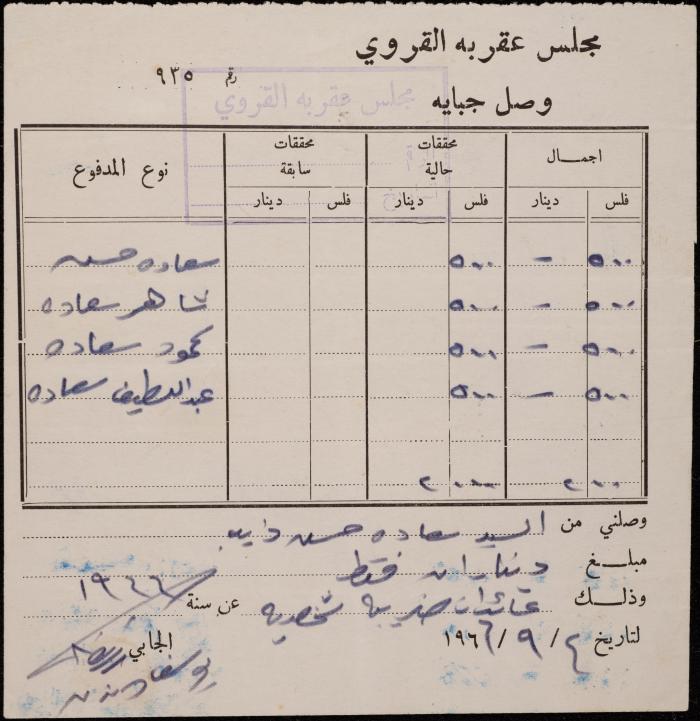 مجلس عقربه القروي
رقم ٩٣٥
وصل جبايه
مجلس عقربه القروي
اجمــال محققات حالية محققات سابقة نوع المدفوع
فلس دينار فلس دينار فلس دينار
٥٠٠ - ٥٠٠ سعاده حسن
٥٠٠ - ٥٠٠ شاهر سعاده
٥٠٠ - ٥٠٠ محمود سعاده
٥٠٠ - ٥٠٠ عبداللطيف سعاده
٢٠٠٠ ٢٠٠٠
وصلني من السيد سعاده حسن ذيب
مبلــغ ديناران فقط
وذلــك عائدات ضريبه شخصيه عن سنة ١٩٦٦
لتاريخ ٤/٩/١٩٦٦ الجابي
يوسف